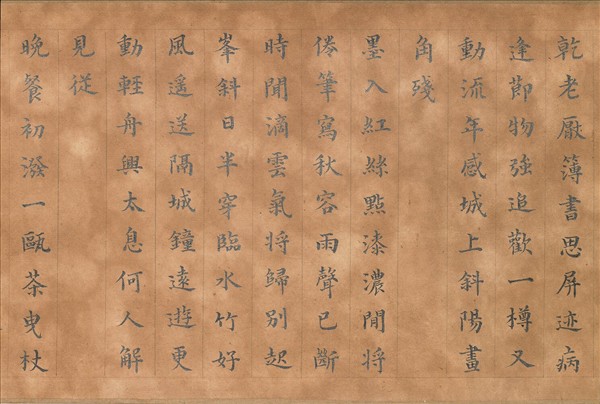 乾老厭簿書思屏迹病
逢節物強追歡一樽又
動流年感城上斜陽畫
角殘
墨入紅絲點漆濃閒將
倦筆寫秋容雨聲已斷
時聞滴雲氣將歸別起
峯斜日半穿臨水竹好
風遥送隔城鐘遠遊更
動輕舟興太息何人解
見從
晚餐初潑一甌茶曳杖